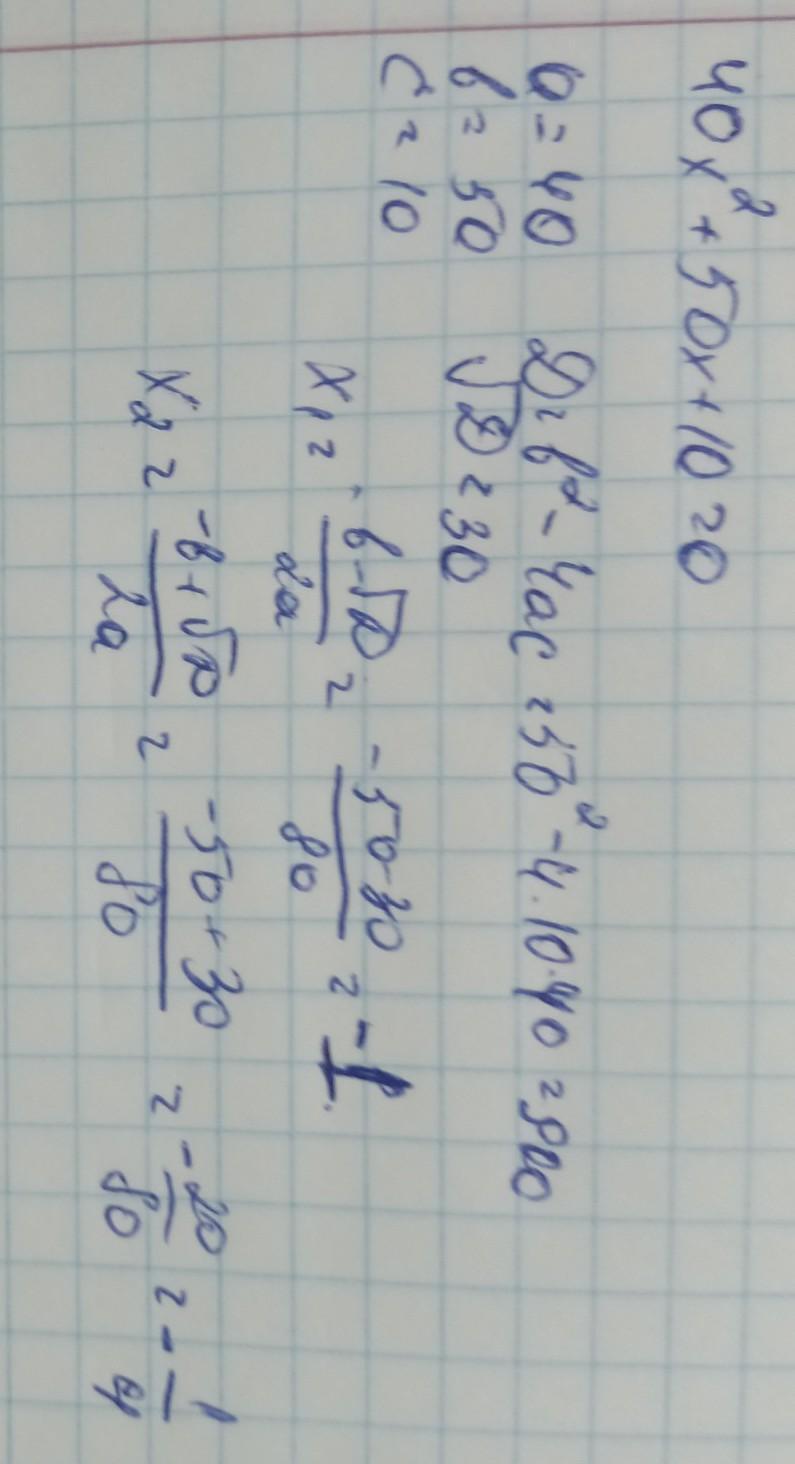 40x² + 50x + 10 = 0
a = 40
b = 50
c = 10
D = b² - 4ac = 50² - 4·10·40 = 900
√D = 30
x₁ = (-b-√D)/2a = (-50-30)/80 = -1.
x₂ = (-b+√D)/2a = (-50+30)/80 = -20/80 = -1/4